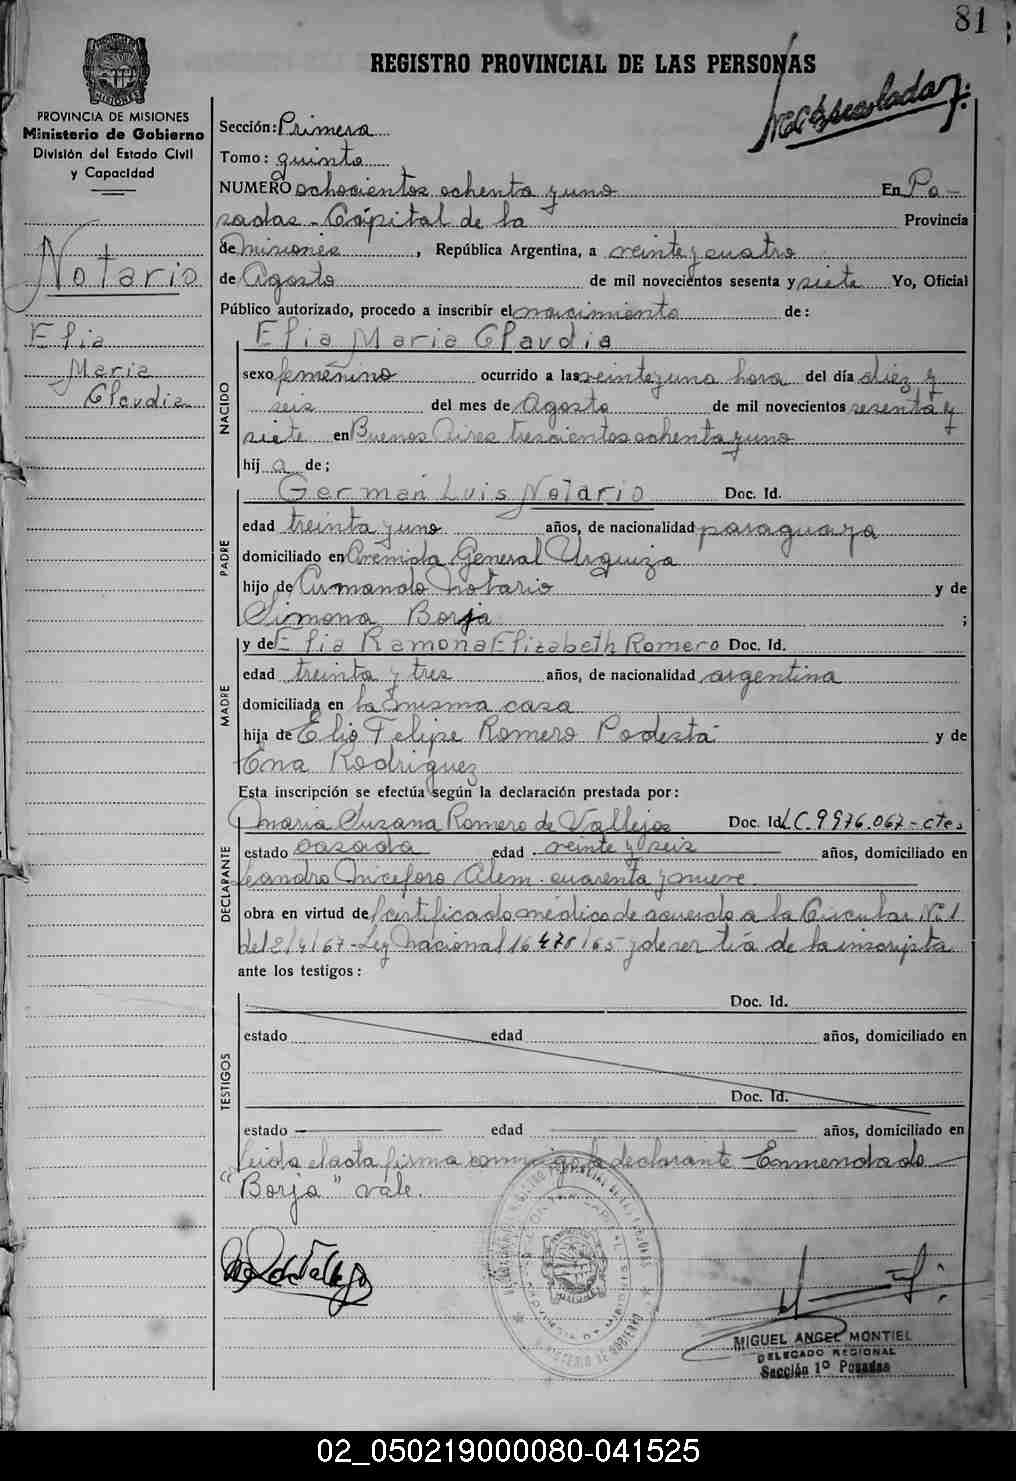 81
REGISTRO PROVINCIAL DE LAS PERSONAS
PROVINCIA DE MISIONES
Ministerio de Gobierno
División del Estado Civil
y Capacidad
Notario
Elia
Maria
Claudia
Sección: Primera
Tomo: quinto
NUMERO ochocientos ochenta y uno En Po-
sadas - Cápital de la Provincia
de Misiones, República Argentina, a veinte y cuatro
de Agosto de mil novecientos sesenta y siete Yo, Oficial
Público autorizado, procedo a inscribir el nacimiento de:
NACIDO
Elia Maria Claudia
sexo femenino ocurrido a las veinte y una hora del día diez y
seis del mes de Agosto de mil novecientos sesenta y
siete en Buenos Aires trescientos ochenta y uno
hij a de;
PADRE
German Luis Notario Doc. Id.
edad treinta y uno años, de nacionalidad paraguaya
domiciliado en Avenida General Urquiza
hijo de Armando Notario y de
Simona Borja ;
MADRE
y de Elia Ramona Elizabeth Romero Doc. Id.
edad treinta y tres años, de nacionalidad argentina
domiciliada en la misma casa
hija de Elio Felipe Romero Podestá y de
Ena Rodriguez
Esta inscripción se efectúa según la declaración prestada por:
DECLARANTE
Maria Suzana Romero de Vallejos Doc. Id. LC. 9976.067-ctes
estado casada edad veinte y seis años, domiciliado en
Leandro Niceforo Alem cuarenta y nueve
obra en virtud de certificado médico de acuerdo a la Circular Nº 1
del 2/4/67 - Ley Nacional 16478/65 y de ser tía de la inscripta
ante los testigos:
TESTIGOS
Doc. Id.
estado edad años, domiciliado en
Doc. Id.
estado edad años, domiciliado en
Leida el acta firma conmigo la declarante Enmendado
"Borja" vale.
MINISTERIO DE GOBIERNO
MIGUEL ANGEL MONTIEL
DELEGADO REGIONAL
Sección 1º Posadas
02_050219000080-041525